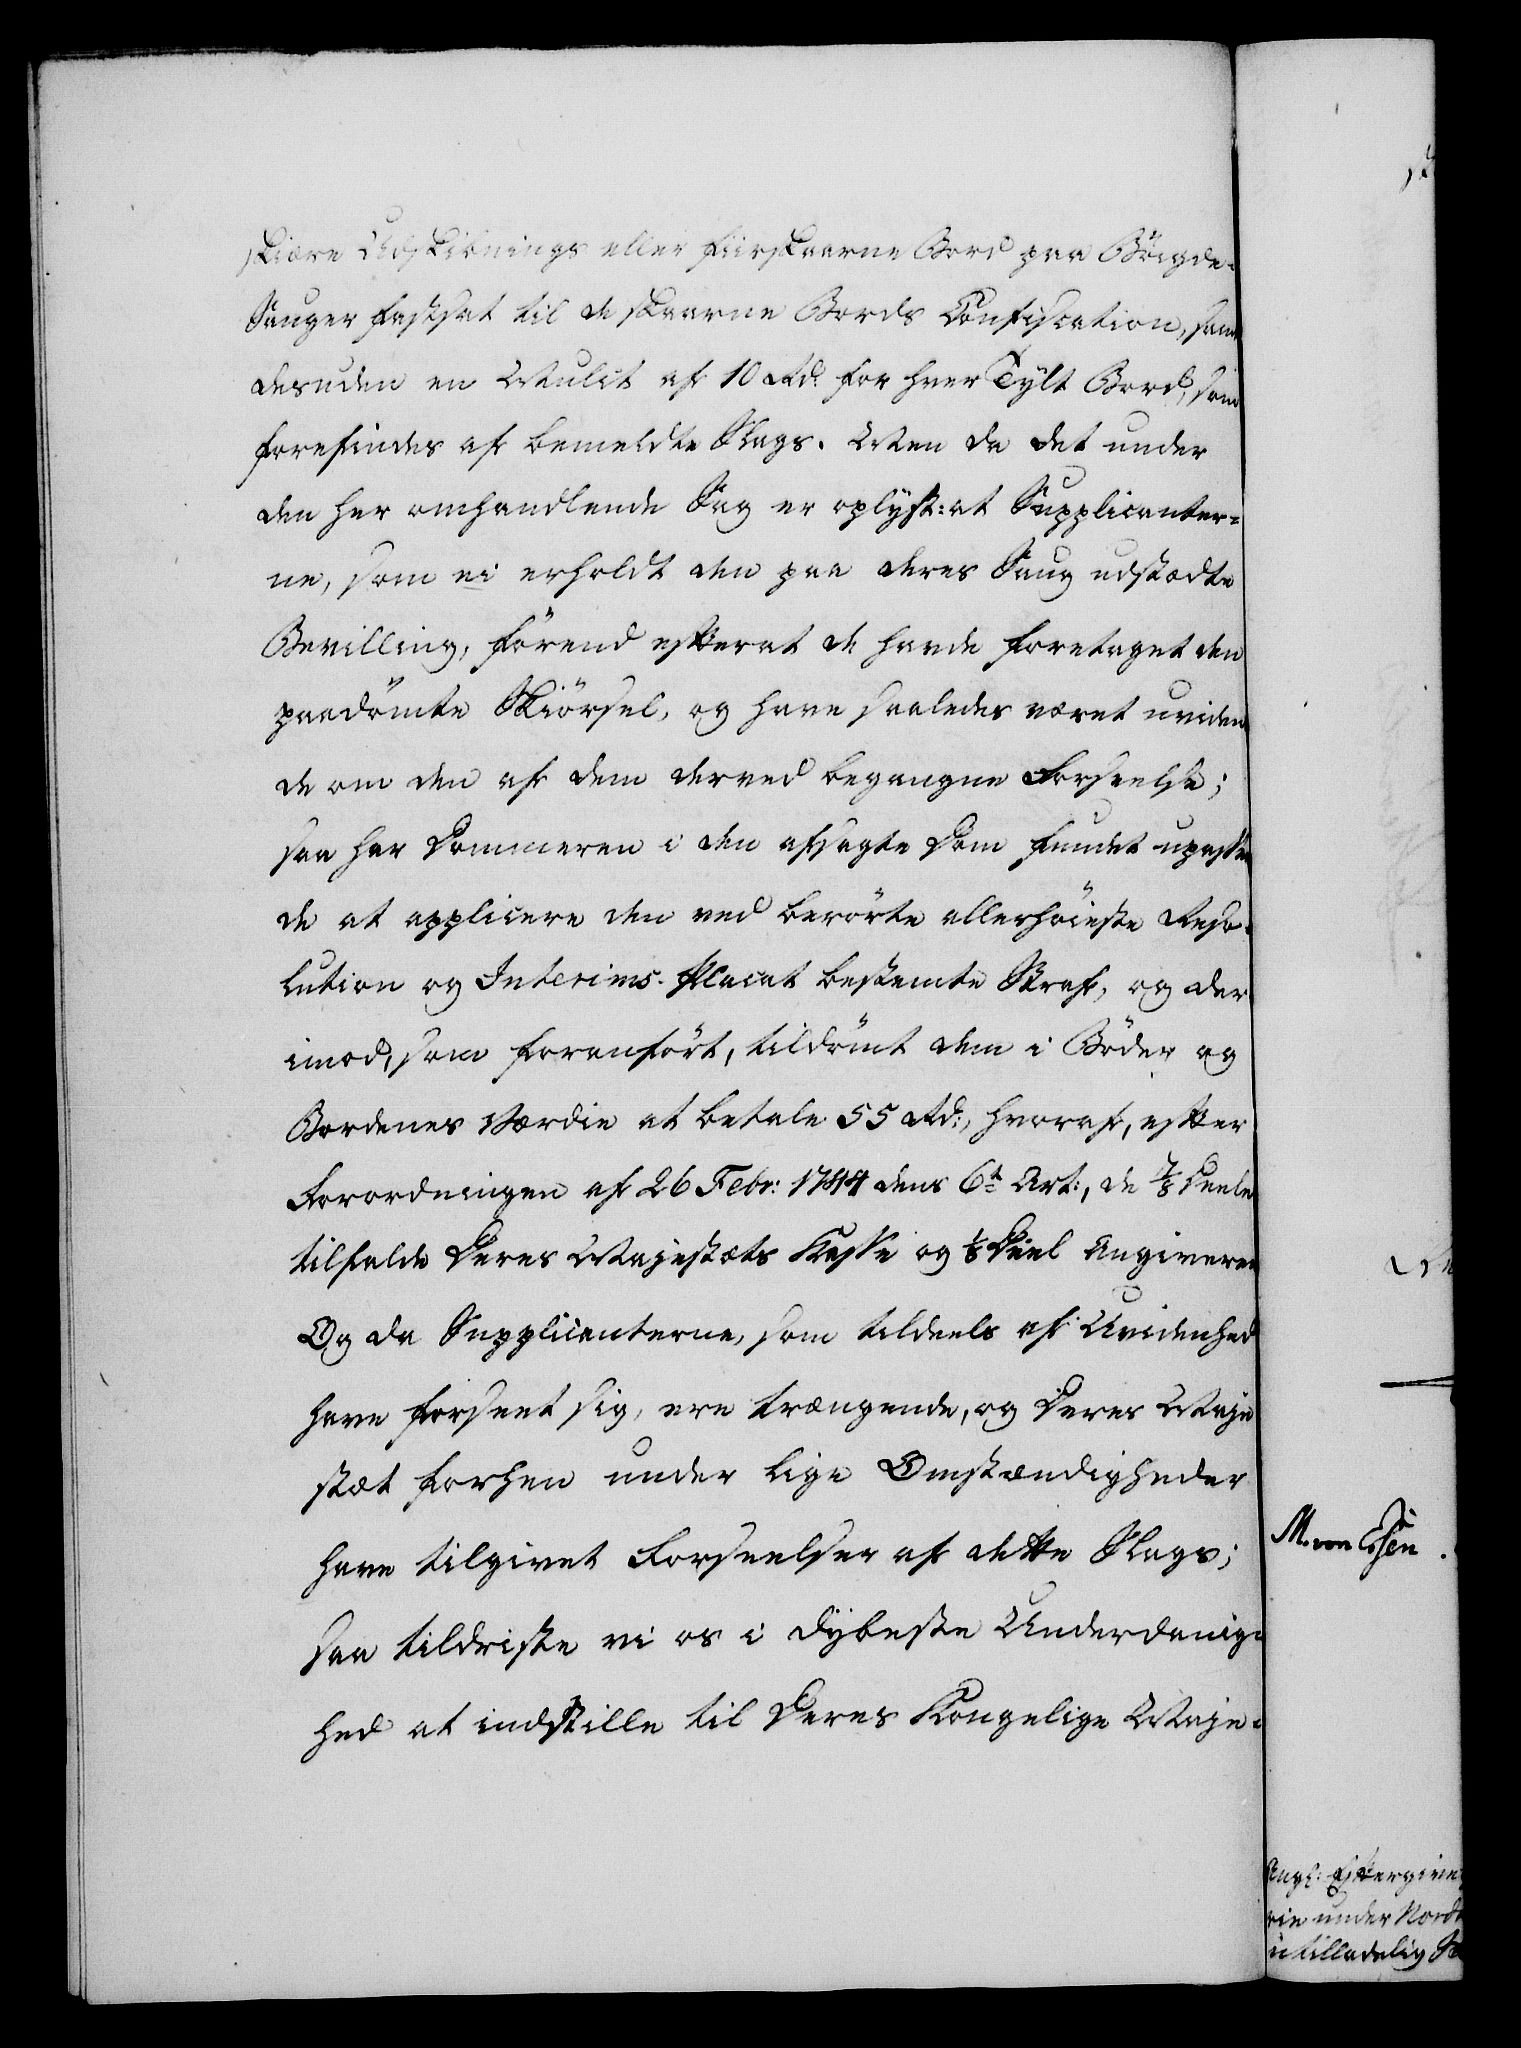 skiære Udskibnings eller fiirskaarne Bord paa Böigde-
Sauger fastsat til de skaarne Bords Confiscation, samt
desuden en Mulct af 10 Rd. for hver Tylt Bord, som
forefindes af bemeldte Slags. Men da det under
den her omhandlende Sag er oplyst: at Supplicanter-
ne, som ei erholdt den paa deres Saug udstædte
Bevilling, förend efterat de havde foretaget den
paadömte Skiörsel, og have saaledes været uviden
de om den af dem derved begangne Forseelse;
saa har Dommeren i den afsagte Dom fundet upassen
de at applicere den ved berörte allerhöieste Reso-
lution og Interims-Placat bestemte Straf, og der
imod, som foranfört, tildömt dem i Böder og
Bordenes Værdie at betale 55 Rd:, hvoraf, efter
Forordningen af 26 Febr: 1744 dens 6te Art:, de 7/8 Deele
tilfalde Deres Majestæts Kasse og 1/8 Deel Angiveren
Og da Supplicanterne, som tildeels af Uvidenhed
have forseet sig, ere trængende, og Deres Maje
stæt forhen under lige Omstændigheder
have tilgivet Forseelser af dette Slags;
saa tildriste vi os i dybeste Underdanig-
hed at indstille til Deres Kongelige Maje-
M. von Essen.
Angl: Eftergive
rie under Nord
utilladelig